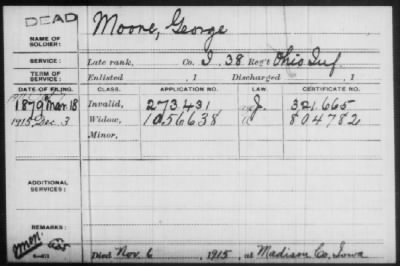 DEAD
Moore, George
NAME OF SOLDIER:
SERVICE: Late rank, Co. I, 38 Reg't Ohio Inf.
TERM OF SERVICE: Enlisted , 1 Discharged , 1
DATE OF FILING. CLASS. APPLICATION NO. LAW. CERTIFICATE NO.
1879 Mar. 18 Invalid, 273.431 J. 321.665
1915 Dec. 3 Widow, 1056638 804782
Minor,
ADDITIONAL SERVICES:
REMARKS:
Died Nov. 6 , 1915, at Madison Co, Iowa